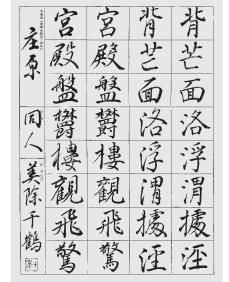 背芒面洛浮渭據涇
背芒面洛浮渭據涇
宮殿盤鬱樓觀飛驚
宮殿盤鬱樓觀飛驚
庄原 同人 美除千鶴